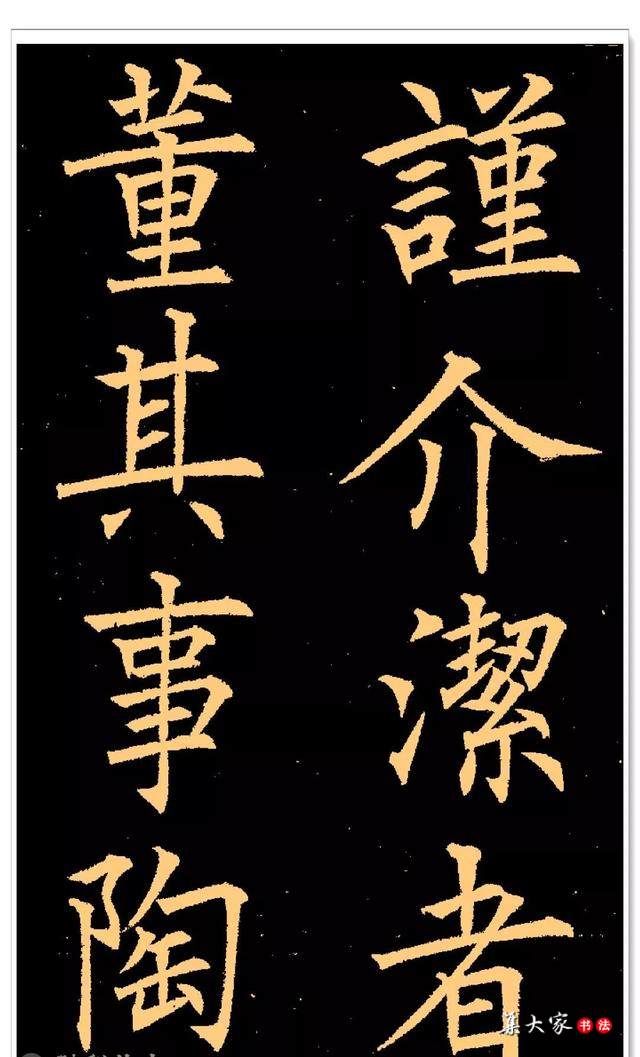 謹介潔者
董其事陶
集大家书法